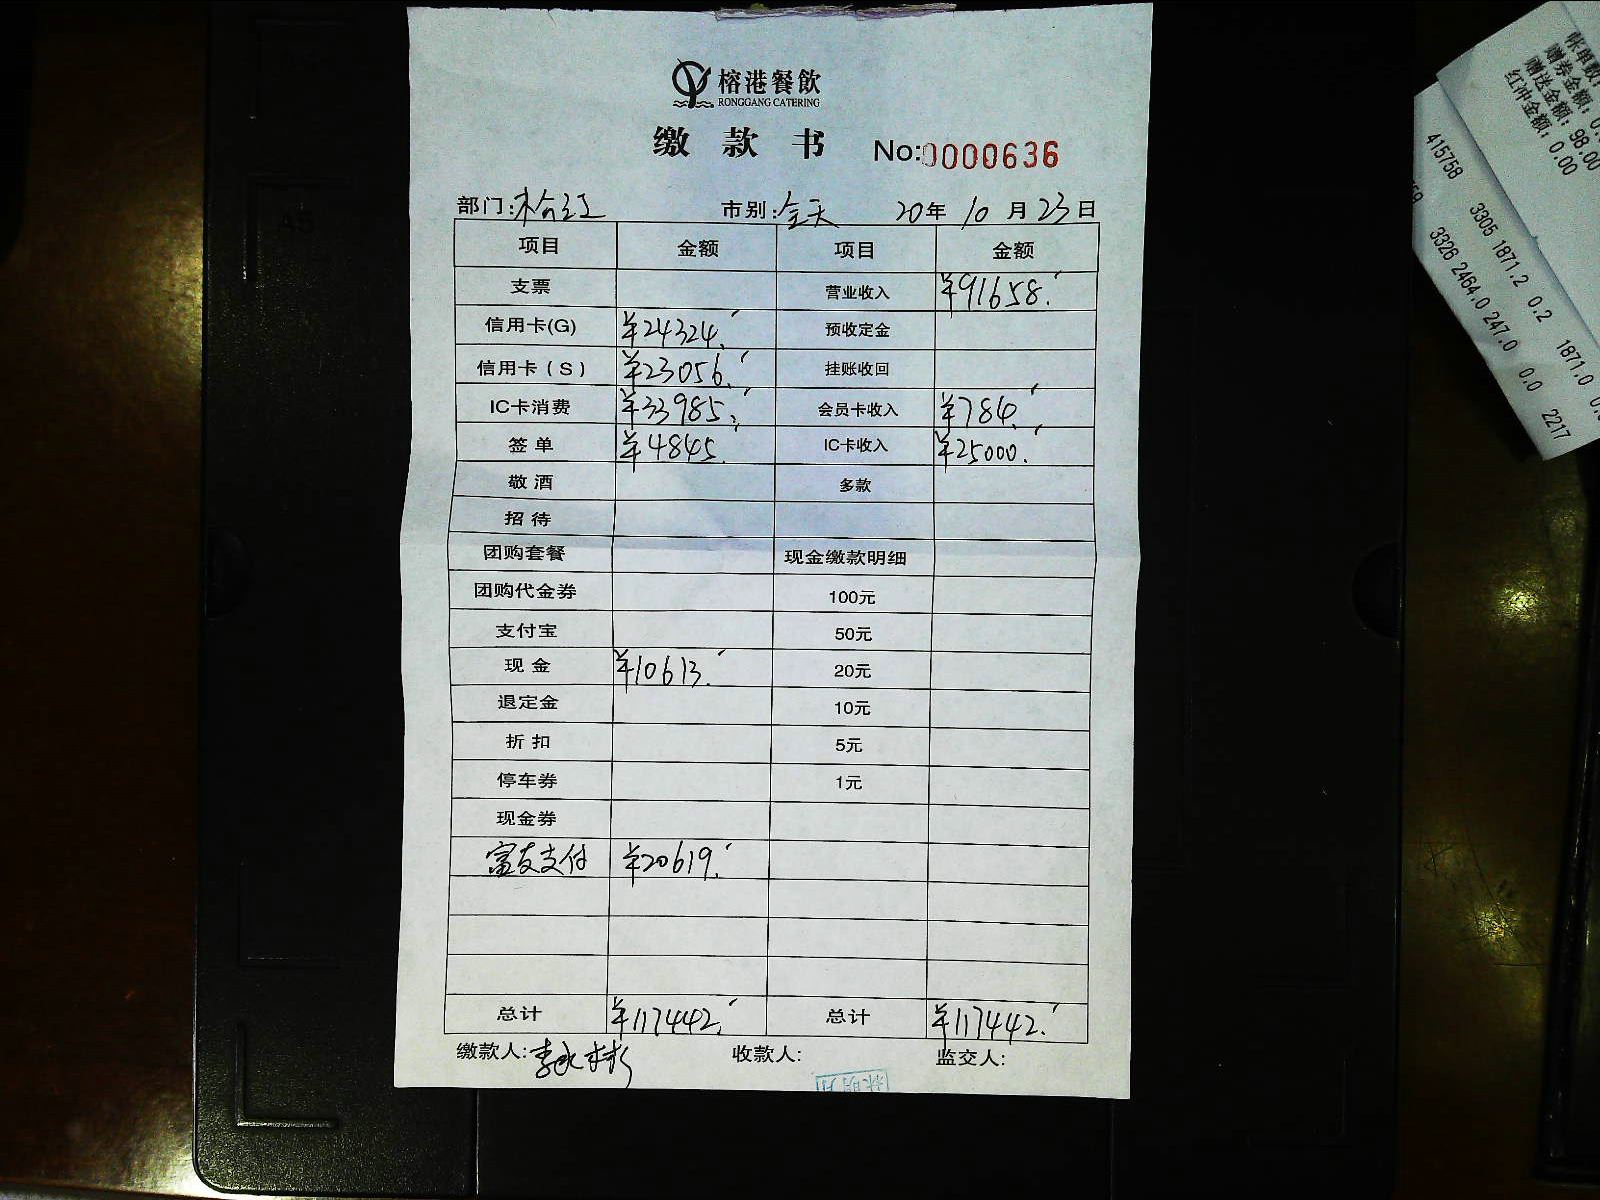 榕港餐飲
RONGGANG CATERING
缴款书 No:0000636
部门: 市别:全天 20年10月23日
项目 金额 项目 金额
支票 营业收入 ¥91658.
信用卡(G) ¥24324. 预收定金
信用卡(S) ¥23056. 挂账收回
IC卡消费 ¥33985. 会员卡收入 ¥784.
签单 ¥4845. IC卡收入 ¥25000.
敬酒 多款
招待
团购套餐 现金缴款明细
团购代金券 100元
支付宝 50元
现金 ¥10613. 20元
退定金 10元
折扣 5元
停车券 1元
现金券
富友支付 ¥20619.
总计 ¥117442. 总计 ¥117442.
缴款人: 收款人: 监交人:
帐单数:
赠券金额: 0.
赠送金额: 98.00
红冲金额: 0.00
415758
3305 1871.2 0.2 1871.0 0.
3326 2464.0 247.0 0.0 2217